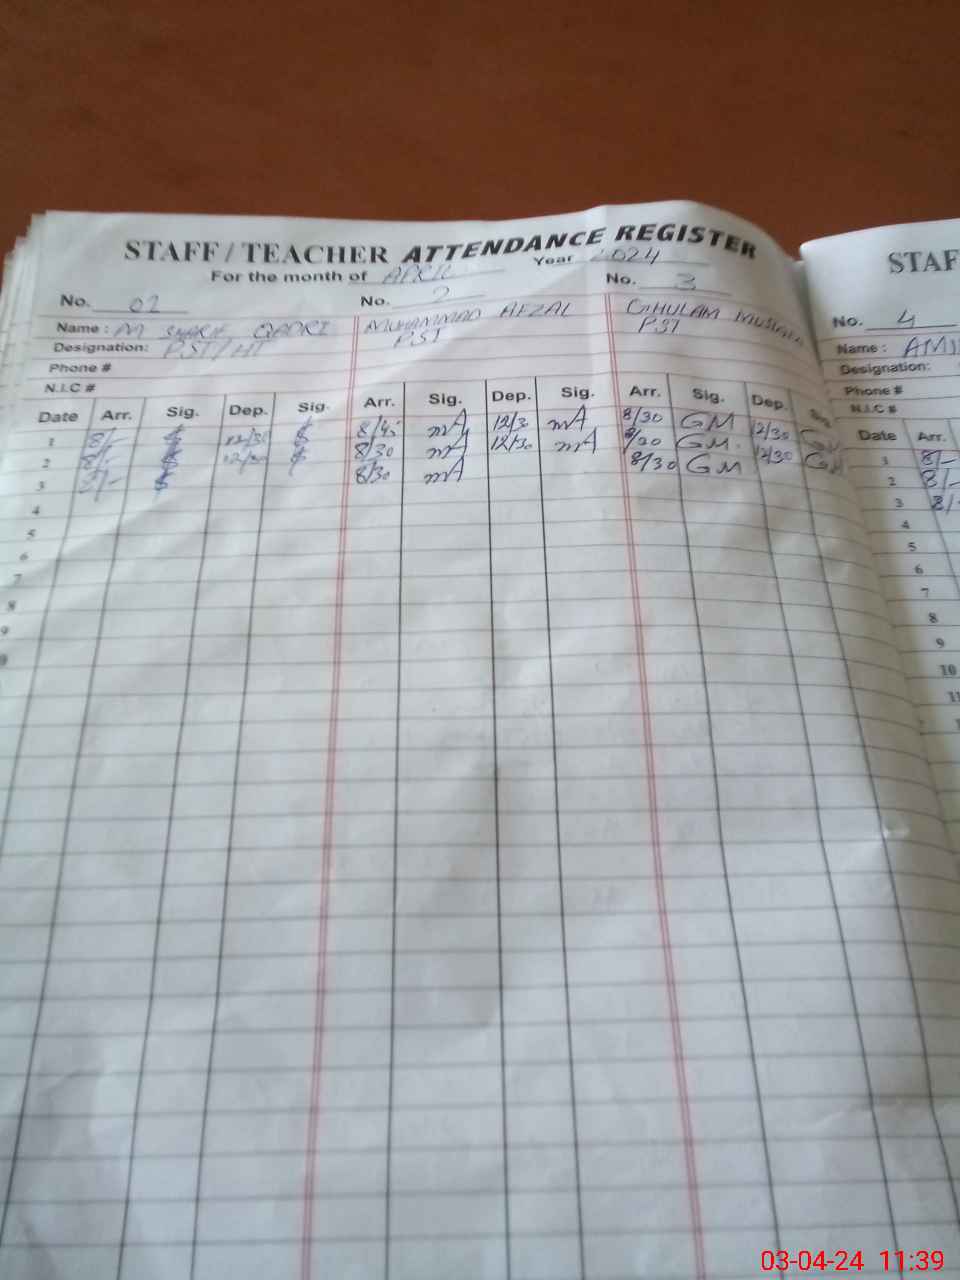 STAFF / TEACHER ATTENDANCE REGISTER
For the month of APRIL Year 2024
No. 01 No. 2 No. 3
Name : M SHARIF QADRI MUHAMMAD AFZAL GHULAM MUSTAFA
Designation: PST/HT PST PST
Phone #
N.I.C #
Date Arr. Sig. Dep. Sig. Arr. Sig. Dep. Sig. Arr. Sig. Dep. Sig.
1 8/- 12/30 8/45 mA 12/3 mA 8/30 GM 12/30 GM
2 8/- 12/30 8/30 mA 12/30 mA 8/30 GM. 12/30 GM
3 8/- 8/30 mA 8/30 GM
4
5
6
7
8
9
STAF
No. 4
Name : AMI
Designation:
Phone #
N.I.C #
Date Arr.
1 8/-
2 8/-
3 8/-
4
5
6
7
8
9
10
11
03-04-24 11:39